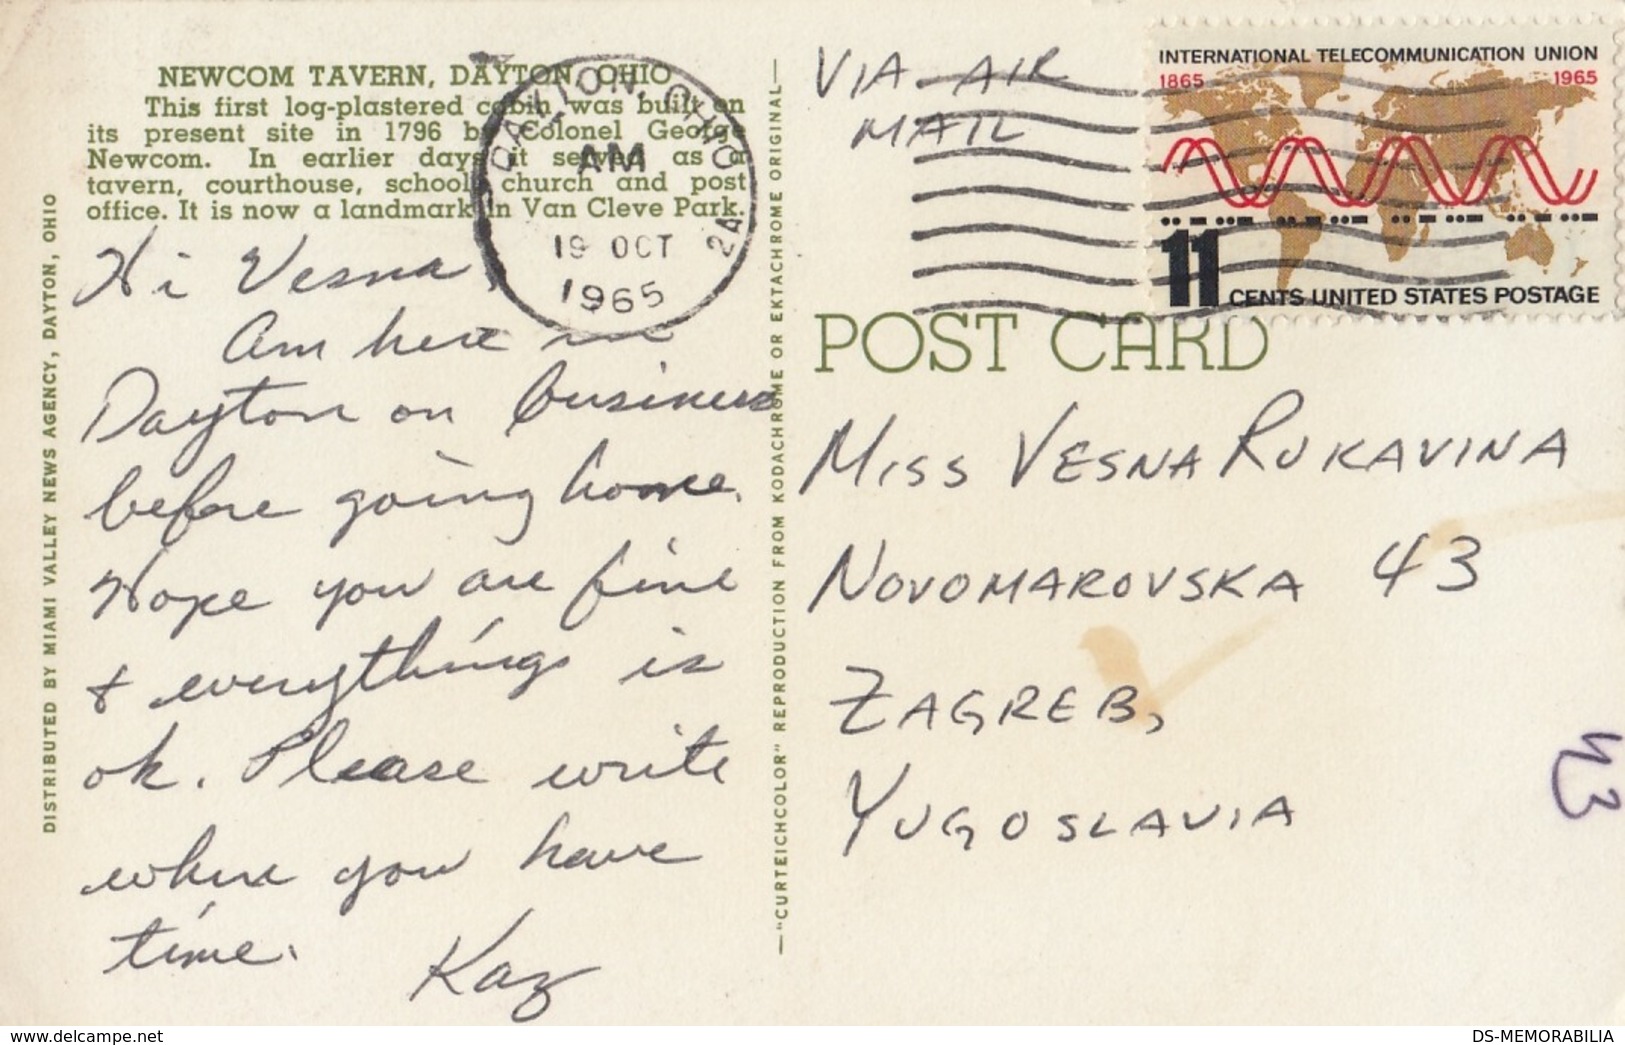 NEWCOM TAVERN, DAYTON, OHIO
This first log-plastered cabin was built on
its present site in 1796 by Colonel George
Newcom. In earlier days it served as a
tavern, courthouse, school, church and post
office. It is now a landmark in Van Cleve Park.
DISTRIBUTED BY MIAMI VALLEY NEWS AGENCY, DAYTON, OHIO
Hi Vesna,
Am here in
Dayton on business
before going home.
Hope you are fine
& everything is
ok. Please write
when you have
time.
Kaz
DAYTON, OHIO
AM
19 OCT
1965
2A
—"CURTEICHCOLOR" REPRODUCTION FROM KODACHROME OR EKTACHROME ORIGINAL—
VIA AIR
MAIL
INTERNATIONAL TELECOMMUNICATION UNION
1865 1965
11 CENTS UNITED STATES POSTAGE
POST CARD
MISS VESNA RUKAVINA
NOVOMAROVSKA 43
ZAGREB,
YUGOSLAVIA
www.delcampe.net
DS-MEMORABILIA